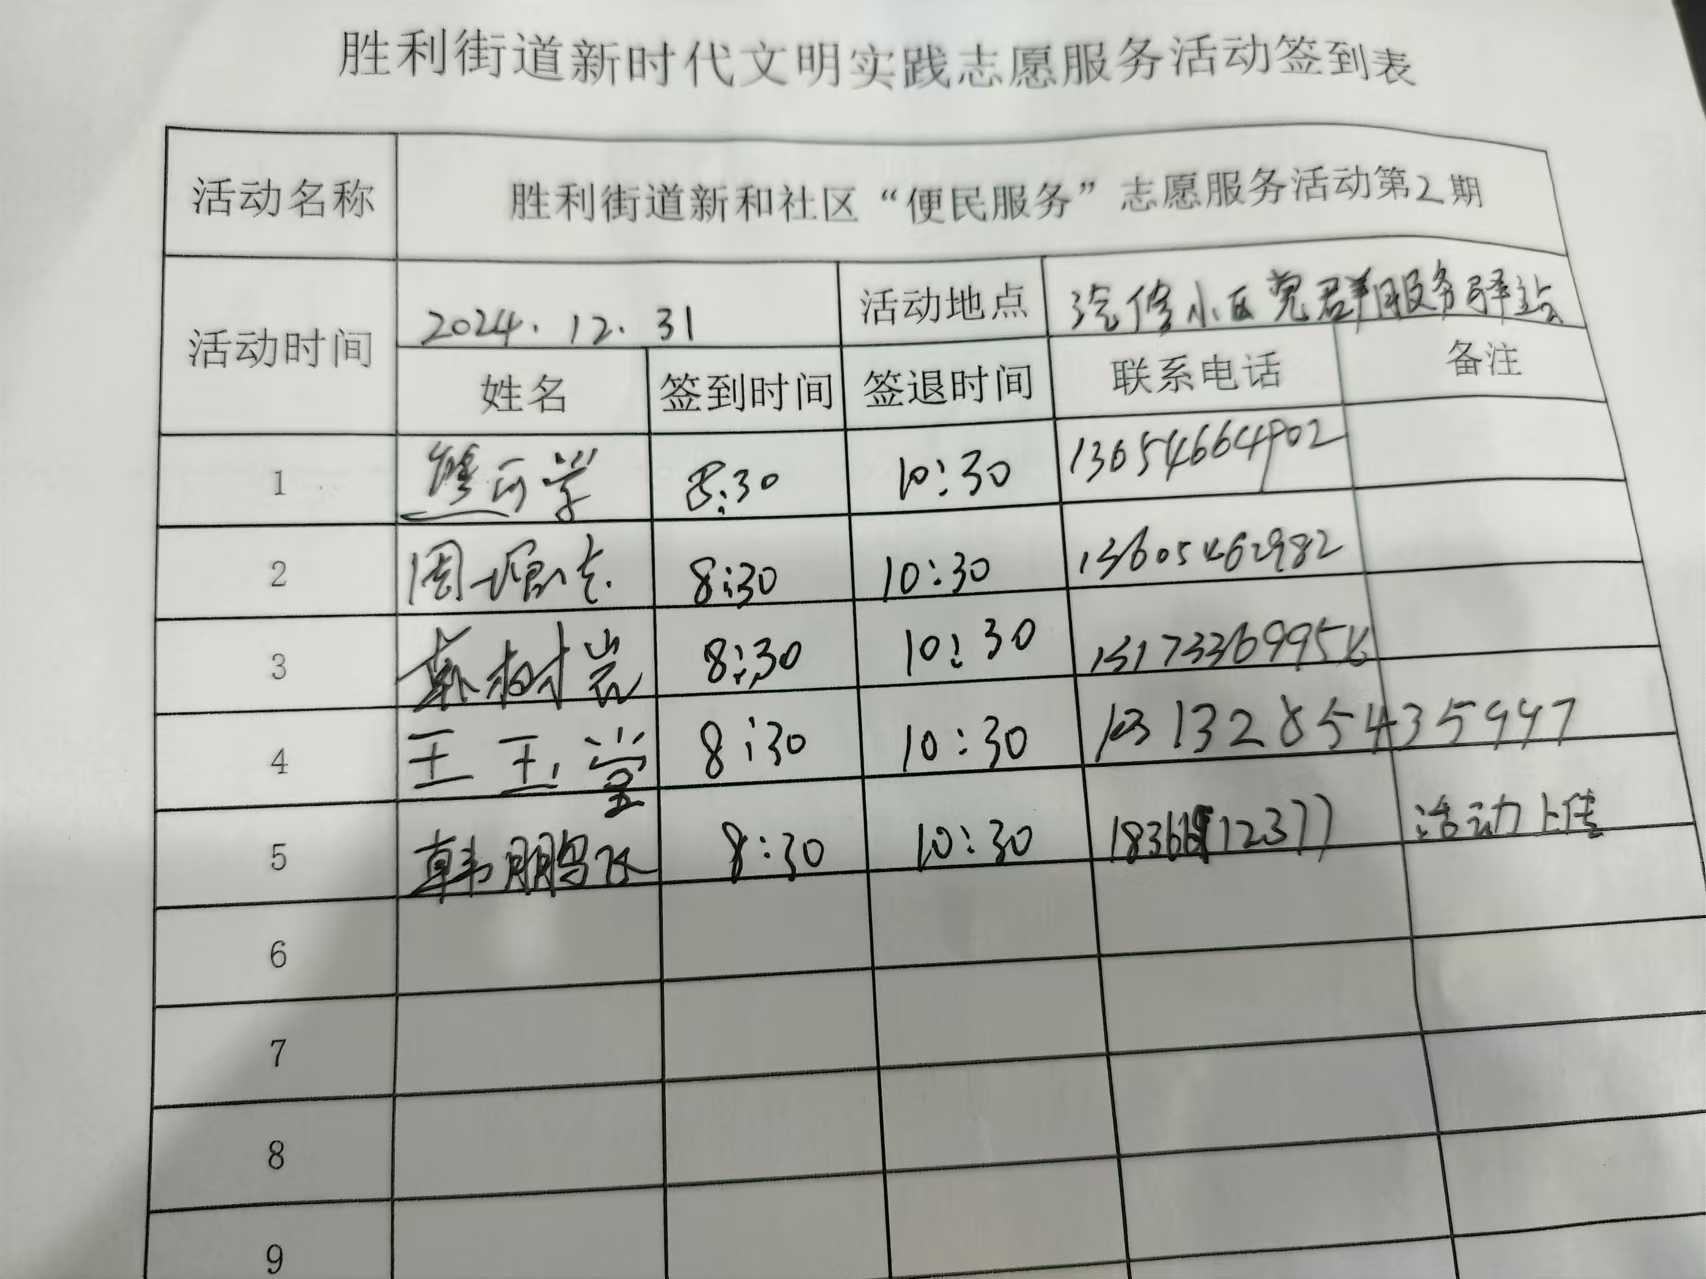 胜利街道新时代文明实践志愿服务活动签到表
活动名称 胜利街道新和社区“便民服务”志愿服务活动第2期
活动时间 2024.12.31 活动地点 汽修小区党群服务驿站
姓名 签到时间 签退时间 联系电话 备注
1 8:30 10:30 13654664902
2 周 8:30 10:30 13605462982
3 树岩 8:30 10:30
4 王玉堂 8:30 10:30
5 韩鹏飞 8:30 10:30 活动上传
6
7
8
9